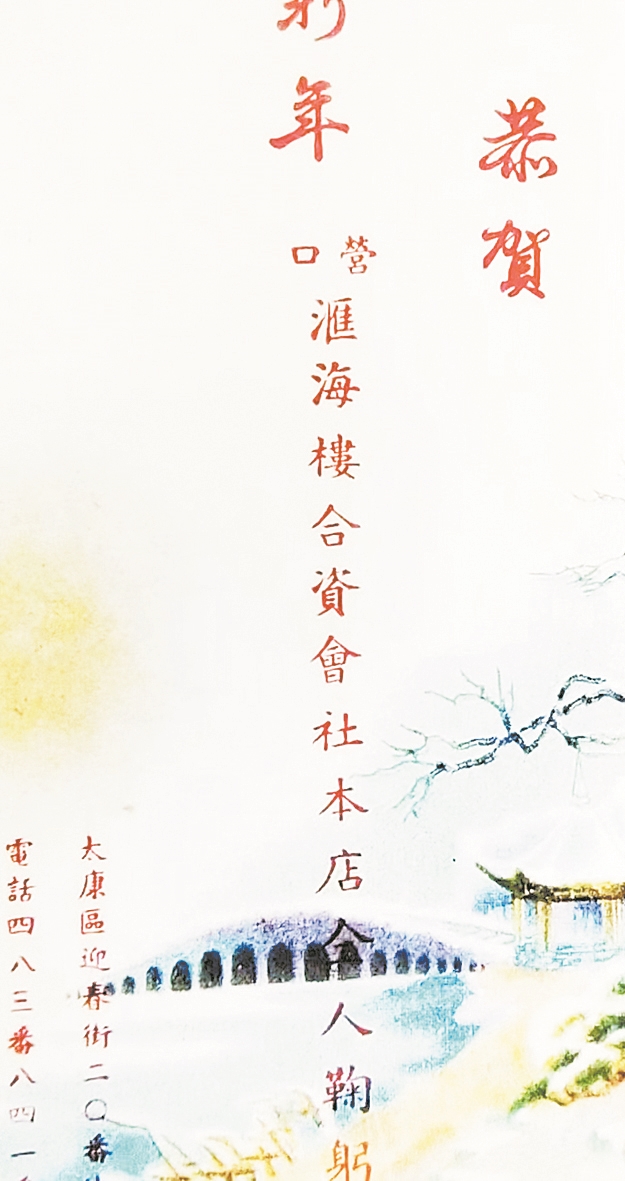 恭賀
新年
營口滙海樓合資會社本店仝人鞠躬
太康區迎春街二〇番
電話四八三番八四一